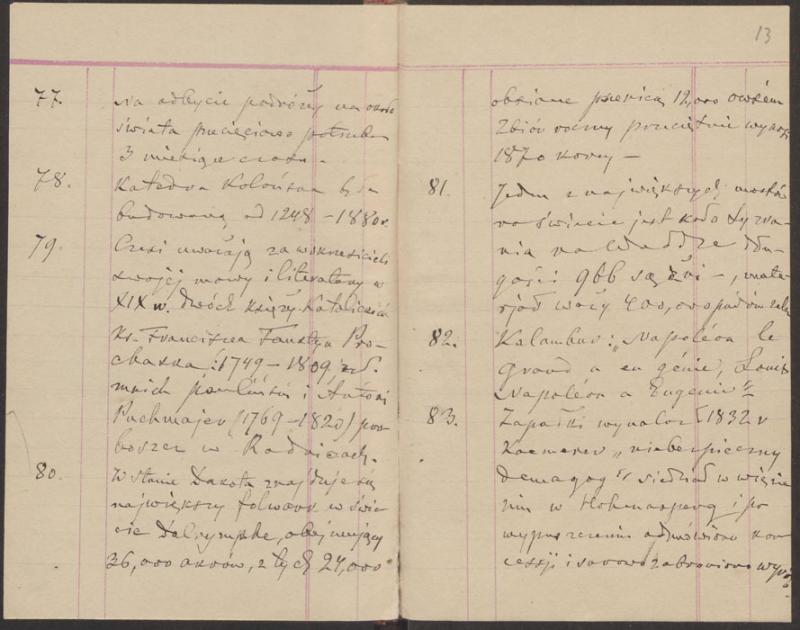 77. Na odbycie podróży na około
świata przeciętnie potrzeba
3 miesiące czasu.
78. Katedra Kolońska była
budowaną od 1248 – 1880 r.
79. Czesi uważają za wskrzesicieli
swojej mowy i literatury w
XIX w. dwóch księży katolickich
Ks. Franciszka Faustyna Pro-
chaska (1749 – 1809,
mnich pauliński i Antoni
Puchmajer (1769 – 1820) pro-
boszcz w Radnicach.
80. W stanie Dakota znajduje się
największy folwark w świe-
cie Dalrympke, obejmujący
36,000 akrów, z tych 24,000
13
obsiane pszenicą, 12,000 owsem
Zbiór roczny przeciętnie wynosi
1870 korcy –
81. Jeden z największych mostów
na świecie jest koło Syzra-
nia na Wołdze dłu-
gości 966 sążni –, mate-
rjał waży 400,000 pudów
82. Kalambur: „Napoléon le
Grand a eu génie, Louis
Napoléon a Eugenie"
83. Zapałki wynalazł 1832 r
Kaemerer „niebezpieczny
demagog" siedział w więzie-
niu w Hohenasperg i po
wypuszczeniu odmówiono kon-
cessji i surowo zabroniono